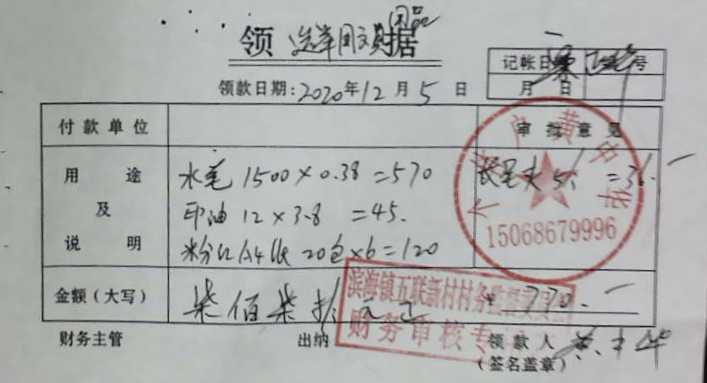 用品
领 选举用文具 据
记帐日 号
领款日期:2020年12月5日 月 日
付款单位 审批意见
用途及说明
水笔 1500×0.38=570 长尾夹 =36.一
印油 12×3.8 =45.
粉红A4纸 20包×6=120
15068679996
金额(大写) 柒佰柒拾元正 ¥ 770.一
滨海镇五联新村村务监督委员会
财务审核专
财务主管 出纳 领款人
(签名盖章)